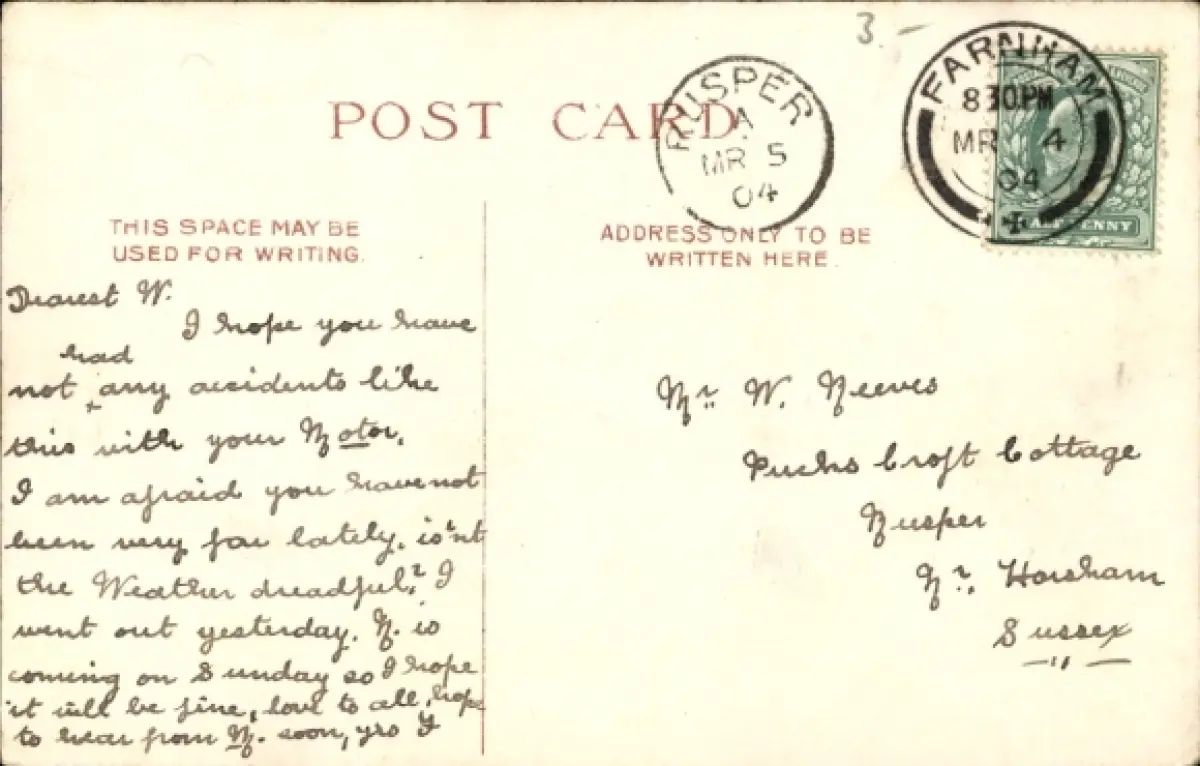 3. —
POST CARD
RUSPER
A
MR 5
04
FARNHAM
8 30 PM
MR 4
04
HALFPENNY
THIS SPACE MAY BE
USED FOR WRITING.
ADDRESS ONLY TO BE
WRITTEN HERE.
Dearest W.
I hope you have
had
not any accidents like
this with your Motor.
I am afraid you have not
been very far lately. is'nt
the Weather dreadful? I
went out yesterday. is
coming on Sunday so I hope
it will be fine, love to all, hope
to hear from soon, yrs
Mr. W. Reeves
Pucks Croft Cottage
Rusper
Nr. Horsham
Sussex